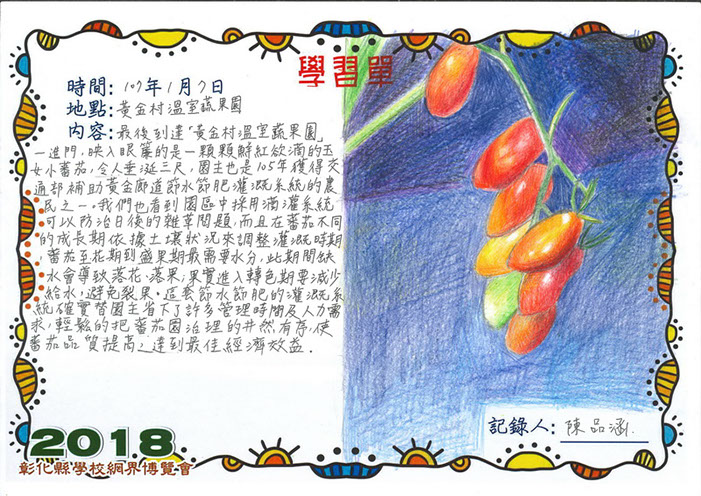 學習單
時間: 107年1月7日
地點: 黃金村溫室蔬果園
內容: 最後到達「黃金村溫室蔬果園」
一進門,映入眼簾的是一顆顆鮮紅欲滴的玉
女小番茄,令人垂涎三尺,園主也是105年獲得交
通部補助黃金廊道節水節肥灌溉系統的農
民之一。我們也看到園區中採用滴灌系統
可以防治日後的雜草問題,而且在番茄不同
的成長期依據土壤狀況來調整灌溉時期
,番茄至花期到盛果期最需要水分,此期間缺
水會導致落花、落果;果實進入轉色期要減少
給水,避免裂果。這套節水節肥的灌溉系
統確實替園主省下了許多管理時間及人力需
求,輕鬆的把番茄園治理的井然有序,使
番茄品質提高,達到最佳經濟效益.
記錄人: 陳品涵.
2018
彰化縣學校網界博覽會